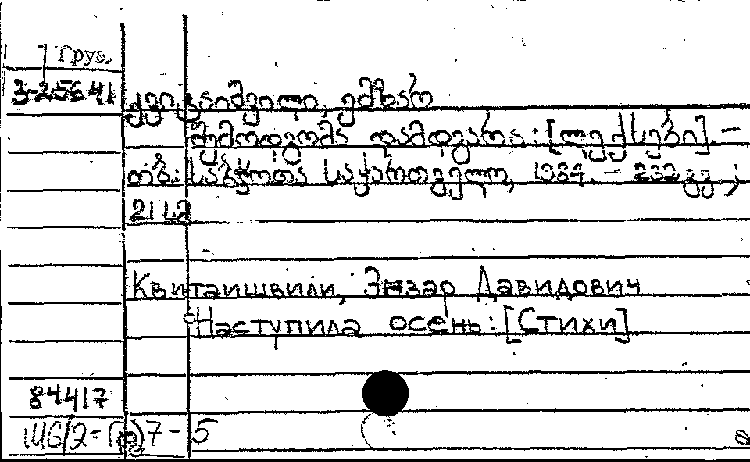 Груз.
3-25641
ქვიტაიშვილი, ემზარ
შემოდგომა დამდგარა: [ლექსები]. –
თბ.: საბჭოთა საქართველო, 1984. – 232 გვ.;
21 см
Квитаишвили, Эмзар Давидович
Наступила осень: [Стихи]
84417
Ш6/2=Гр)7-5